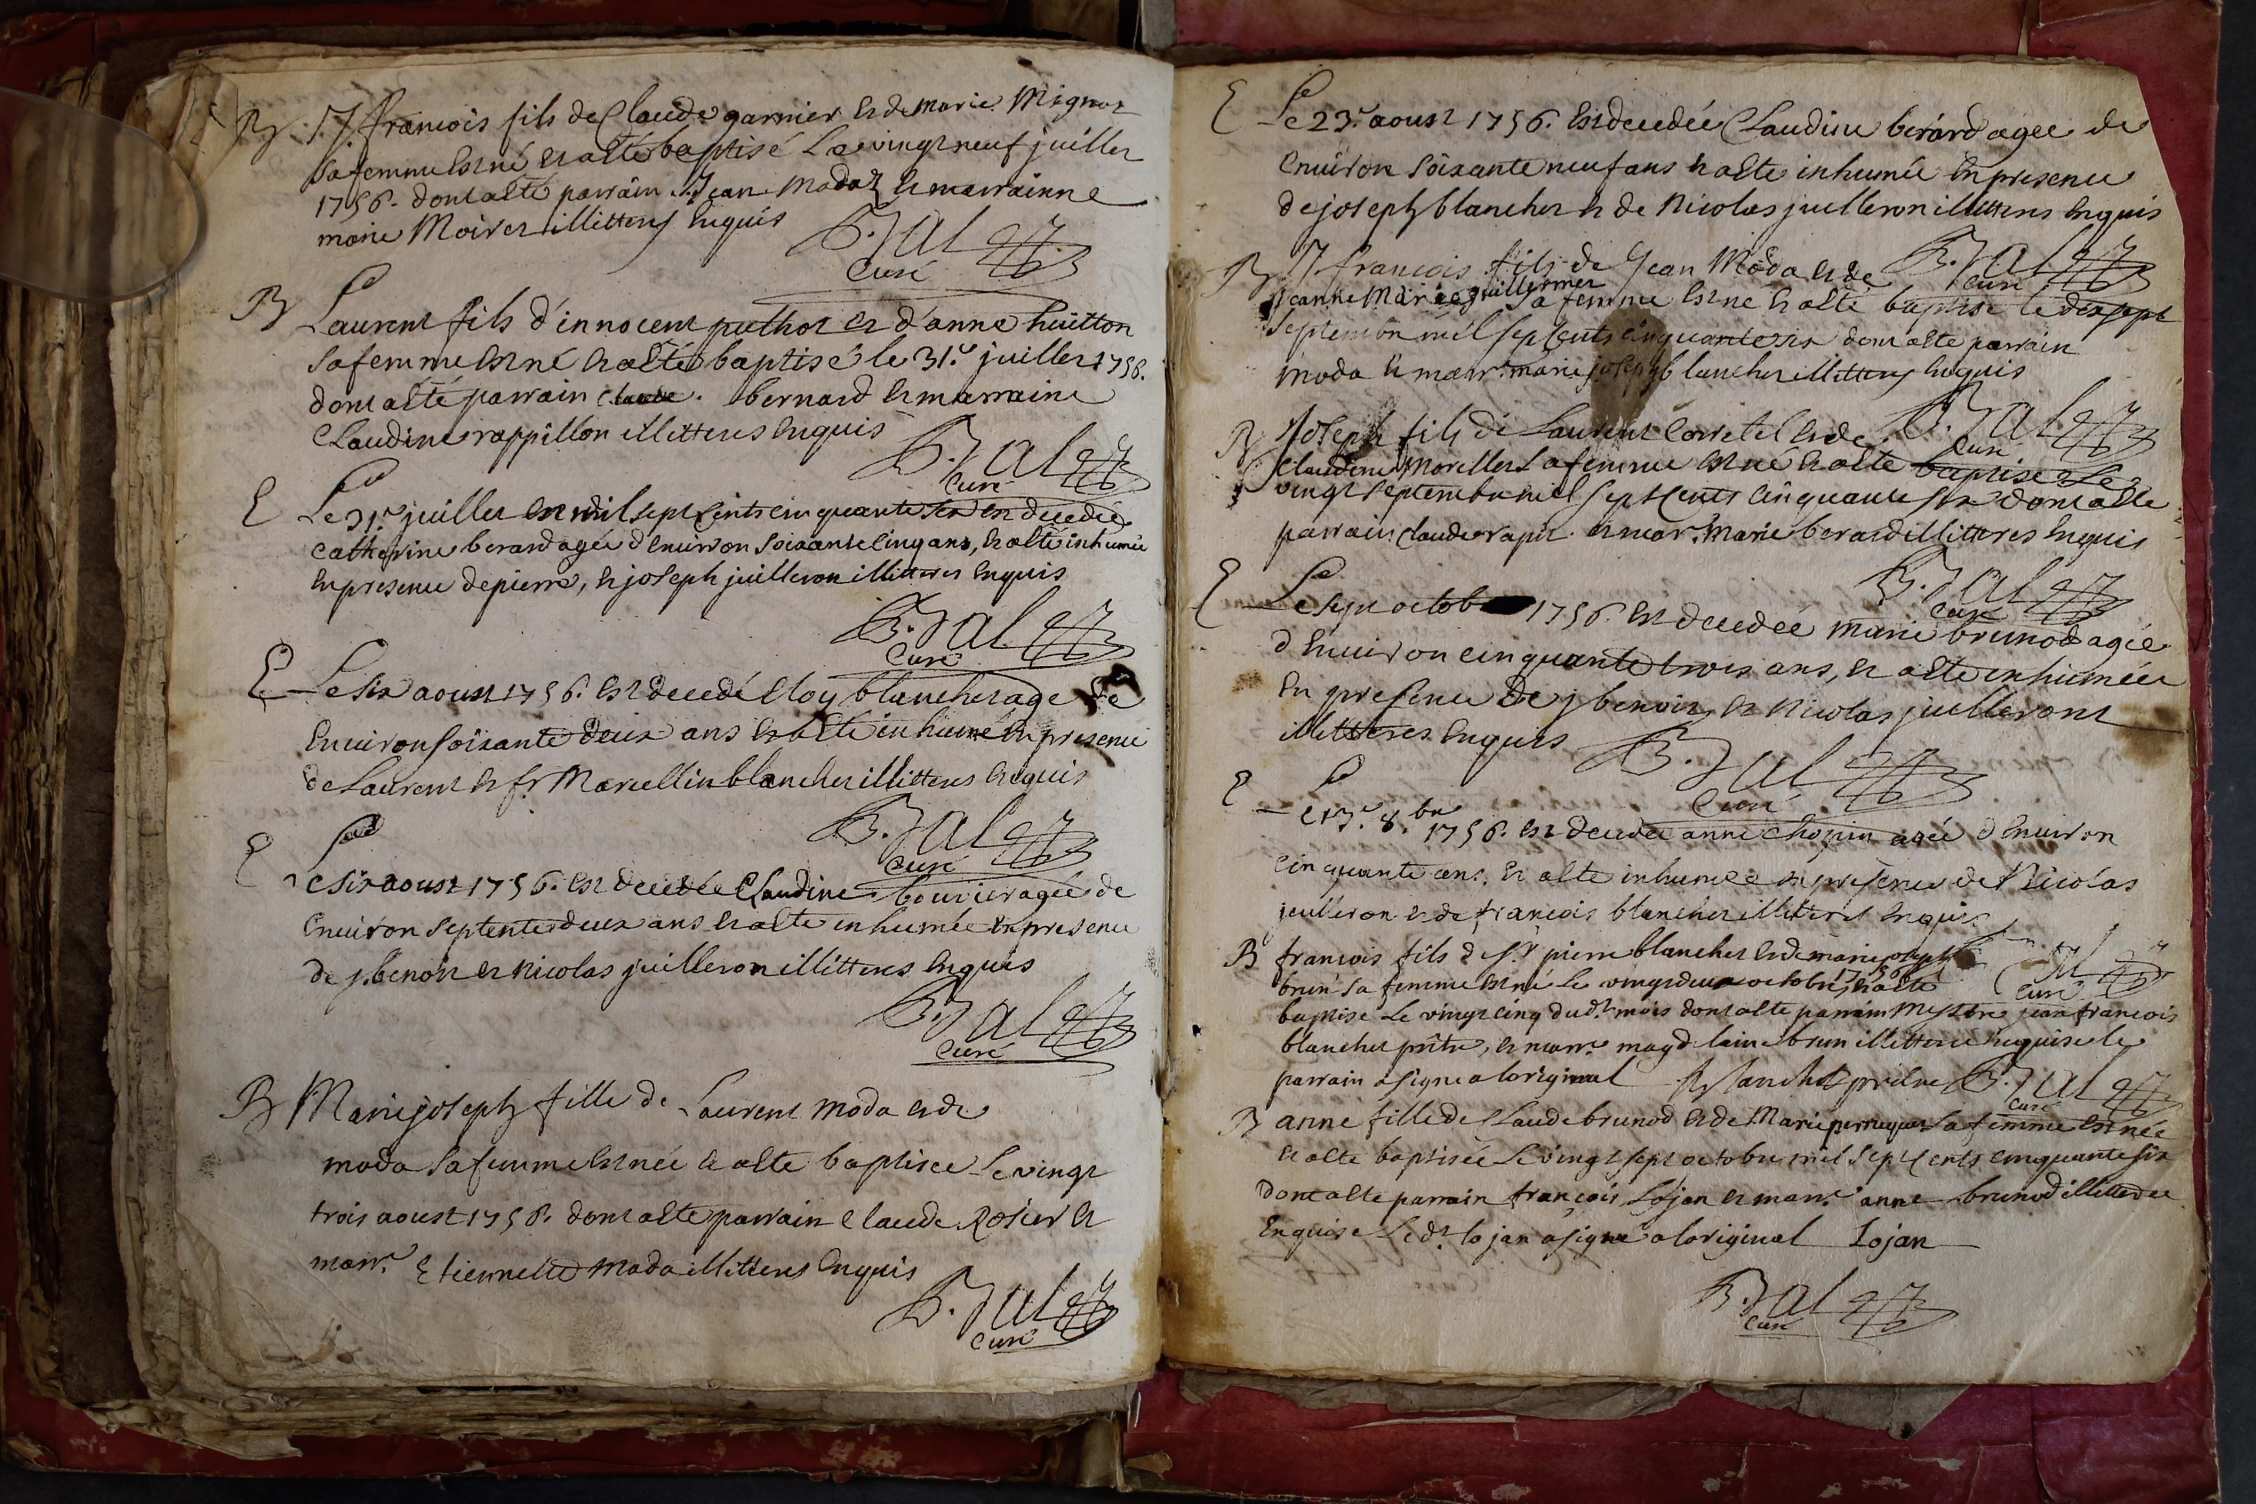 B J. francois fils de Claude garnier et de marie Mignot
sa femme est né et a esté baptisé Le vingt neuf juillet
1756. dont a esté parrain J. Jean Modaz et marrainne
marie Moiret illitterés enquis
B. Jal
Curé
B Laurent fils d'innocent puthot et d'anne huitton
sa femme est né et a esté baptisé le 31.e juillet 1756.
dont a esté parrain Claude bernard et marraine
Claudine rappillon illitteres enquis
B. Jal
Curé
E Le 31.e juillet mil sept cents cinquante six est decedée
Catherine berard agée d'environ soixante cinq ans, et a esté inhumée
en presence de pierre, et joseph juilleron illitteres enquis
B. Jal
Curé
E Le six aoust 1756. est decedé Eloy blanchet age de
environ soixante deux ans et a esté inhumé en presence
de Laurent et fr Marcellin blanchet illitteres enquis
B. Jal
Curé
E Le six aoust 1756. est decedée Claudine bouvier agée de
environ septente deux ans et a esté inhumée en presence
de j. benoit et nicolas juilleron illitteres enquis
B. Jal
Curé
B Marie joseph fille de Laurent moda et de
moda sa femme est née et a esté baptisee Le vingt
trois aoust 1756. dont a esté parrain Claude Rosier et
marr.e Etiennette moda illitteres enquis
B. Jal
Curé
E Le 23.e aoust 1756. est decedée Claudine berard agee de
environ soixante neuf ans et a esté inhumée en presence
de joseph blanchet et de Nicolas juilleron illitteres enquis
B. Jal
Curé
B J francois fils de Jean Moda et de
jeanne Marie guillermet sa femme est ne et a esté baptisé le dix sept
septembre mil sept cents cinquante six dont a esté parrain
moda et marr.e marie joseph blanchet illitteres enquis
B. Jal
Curé
B Joseph fils de Laurent Corretel et de
Claudine Morellet sa femme est né et a esté baptisé Le
vingt septembre mil sept cents cinquante six dont a esté
parrain Claude rapit et mar.e Marie berard illitteres enquis
B. Jal
Curé
E Le sept octob 1756. est decedée marie brunod agée
d'environ cinquante trois ans, et a esté inhumée
en presence de j benoit et nicolas juilleront
illitteres enquis
B. Jal
Curé
E Le 17.e 8.bre 1756. est decedée anne Chopin agée d'environ
cinquante ans. et a esté inhumée en presence de Nicolas
juilleron et de françois blanchet illitteres enquis
B. Jal
Curé
B francois fils de s.r pierre blanchet et de marie joseph
brun sa femme est né le vingt deux octobre 1756 et a esté
baptisé Le vingt cinq dud.t mois dont a esté parrain messire jean francois
blanchet prêtre, et marr.e magdelaine brun illitterée enquise le
parrain a signé a loriginal Blanchet prêtre B. Jal
Curé
B anne fille de Claude brunod et de Marie perruquet sa femme est née
et a esté baptisée Le vingt sept octobre mil sept cents cinquante six
dont a esté parrain françois Lojan et marr.e anne brunod illitteree
enquise Le d.t lojan a signé a loriginal Lojan
B. Jal
Curé